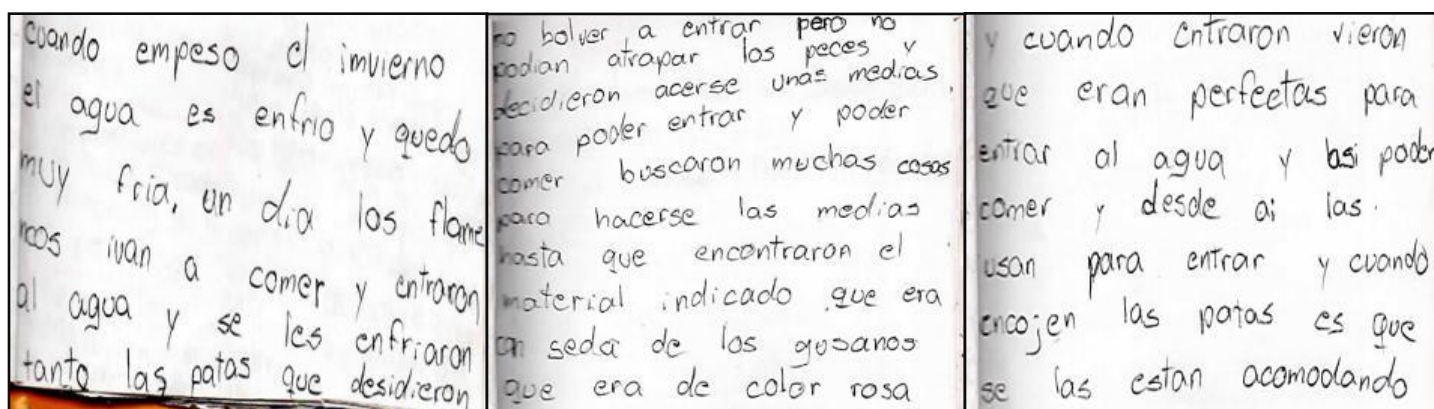 cuando empeso el imvierno
el agua es enfrio y quedo
muy fria, un dia los flame
ncos ivan a comer y entraron
al agua y se les enfriaron
tanto las patas que desidieron
no bolver a entrar pero no
podian atrapar los peces y
decidieron acerse unas medias
para poder entrar y poder
comer buscaron muchas cosas
para hacerse las medias
hasta que encontraron el
material indicado que era
con seda de los gusanos
que era de color rosa
y cuando entraron vieron
que eran perfectas para
entrar al agua y asi poder
comer y desde ai las.
usan para entrar y cuando
encojen las patas es que
se las estan acomodando